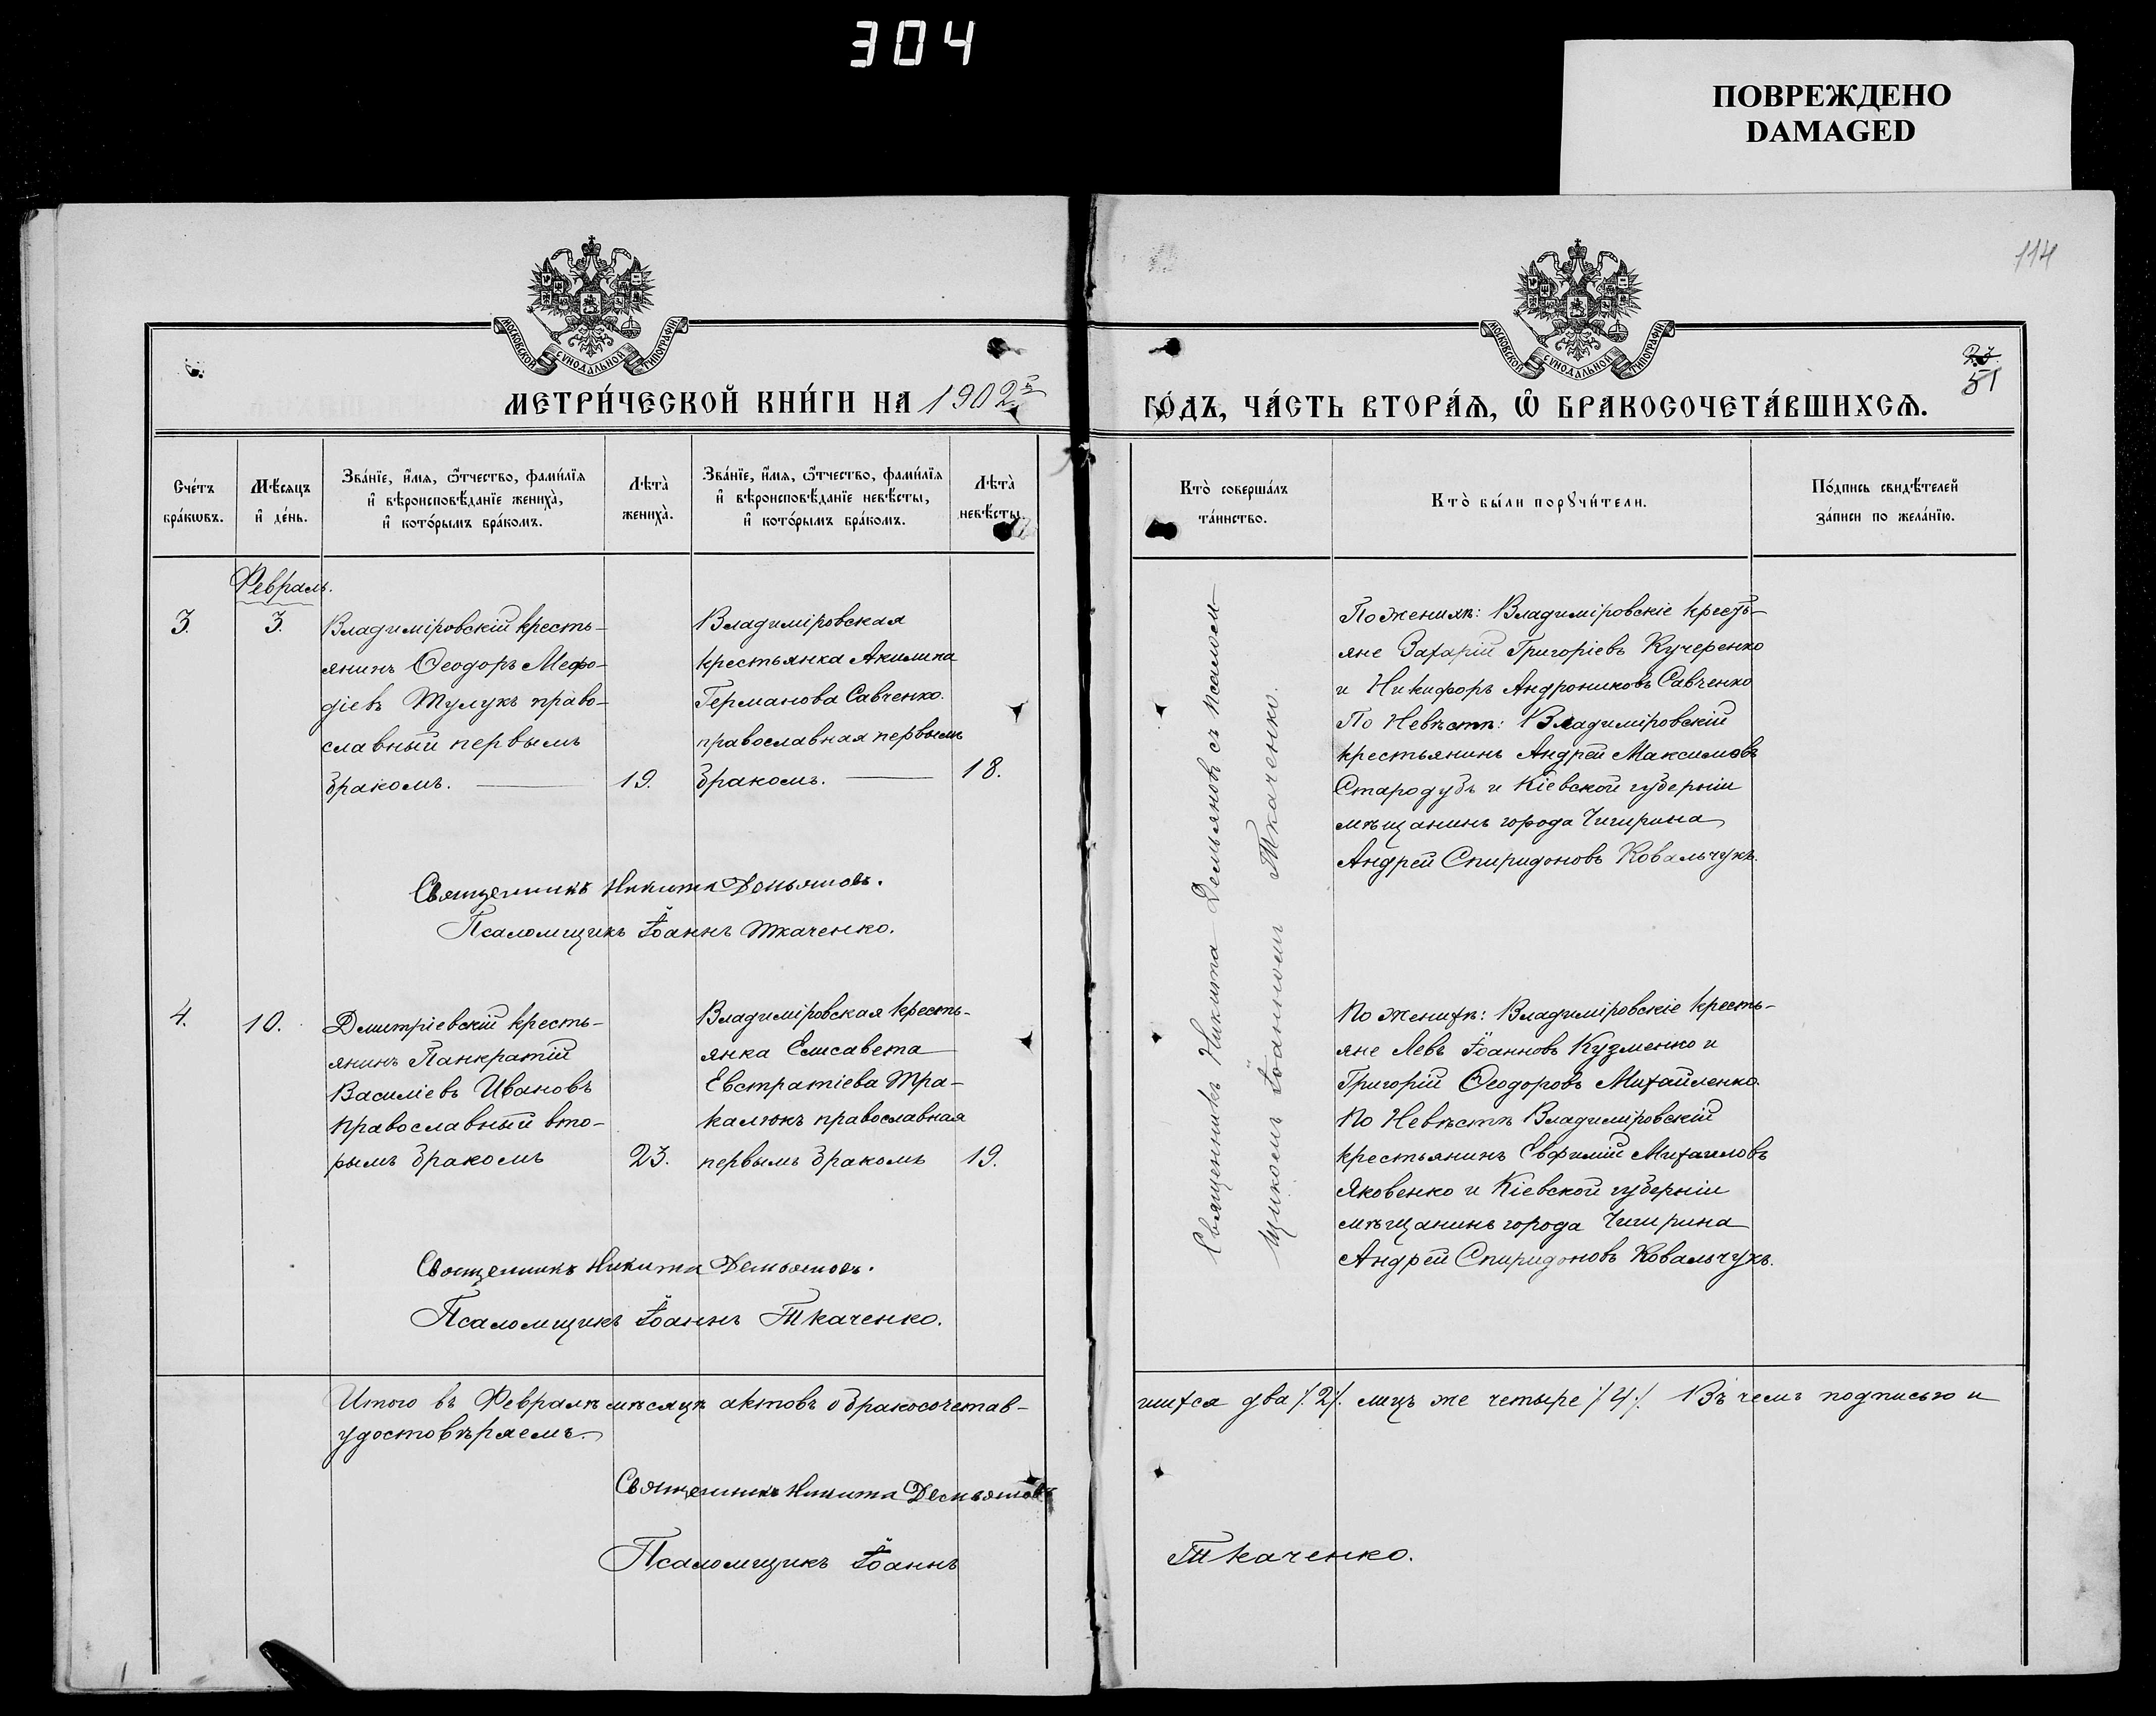 304
ПОВРЕЖДЕНО
DAMAGED
114
МОСКОВСКОЙ СѴНОДАЛЬНОЙ ТИПОГРАФІИ
МОСКОВСКОЙ СѴНОДАЛЬНОЙ ТИПОГРАФІИ
51
МЕТРИ́ЧЕСКОЙ КНИ́ГИ НА 1902й
ГО́ДЪ, ЧА́СТЬ ВТОРА́Ѧ, Ѡ҆ БРАКОСОЧЕТА́ВШИХСѦ.
Сче́тъ
бра́кѡвъ.
Мѣ́сяцъ
и҆ де́нь.
Зва́нїе, и҆́мя, ѻ҆́тчество, фами́лїя
и҆ вѣроисповѣ́данїе жениха̀,
и҆ кото́рымъ бра́комъ.
Лѣта̀
жениха̀.
Зва́нїе, и҆́мя, ѻ҆́тчество, фами́лїя
и҆ вѣроисповѣ́данїе невѣ́сты,
и҆ кото́рымъ бра́комъ.
Лѣта̀
невѣ́сты.
Кто̀ соверша́лъ
та́инство.
Кто̀ бы́ли порꙋчи́тели.
По́дпись свидѣ́телей
за́писи по жела́нїю.
Февраль.
3.
3.
Владиміровскій кресть-
янинъ Ѳеодоръ Мефо-
діевъ Тулукъ право-
славный первымъ
бракомъ.
19.
Владиміровская
крестьянка Акилина
Германова Савченко.
православная первымъ
бракомъ.
18.
Священникъ Никита Демьяновъ съ псалом-
щикомъ Іоанномъ Ткаченко.
По женихѣ: Владиміровскіе кресть-
яне Захарій Григоріевъ Кучеренко
и Никифоръ Андрониковъ Савченко
По Невѣстѣ: Владиміровскій
крестьянинъ Андрей Максимовъ
Стародубъ и Кіевской губерніи
мѣщанинъ города Чигирина
Андрей Спиридоновъ Ковальчукъ.
Священникъ Никита Демьяновъ.
Псаломщикъ Іоаннъ Ткаченко.
4.
10.
Дмитріевскій кресть-
янинъ Панкратій
Василіевъ Ивановъ
православный вто-
рымъ бракомъ
23.
Владиміровская кресть-
янка Елисавета
Евстратіева Тра-
калюкъ православная
первымъ бракомъ
19.
По женихѣ: Владиміровскіе кресть-
яне Левъ Іоанновъ Кузменко и
Григорій Ѳеодоровъ Михайленко.
По Невѣстѣ Владиміровскій
крестьянинъ Евфимій Михаиловъ
Яковенко и Кіевской губерніи
мѣщанинъ города Чигирина
Андрей Спиридоновъ Ковальчукъ.
Священникъ Никита Демьяновъ.
Псаломщикъ Іоаннъ Ткаченко.
Итого въ Февралѣ мѣсяцѣ актовъ о бракосочетав-
шихся два /.2./. лицъ же четыре /.4./. Въ чемъ подписью и
удостовѣряемъ.
Священникъ Никита Демьяновъ
Псаломщикъ Іоаннъ Ткаченко.